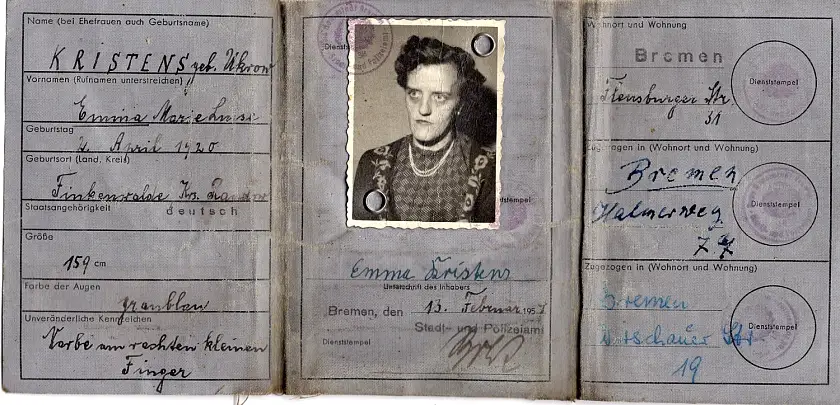 Name (bei Ehefrauen auch Geburtsname)
KRISTENS geb. Ukrow
Vornamen (Rufnamen unterstreichen)
Emma Marie Luise
Geburtstag
4. April 1920
Geburtsort (Land, Kreis)
Finkenwalde Krs. Randow
Staatsangehörigkeit
deutsch
Größe
159 cm
Farbe der Augen
graublau
Unveränderliche Kennzeichen
Narbe am rechten kleinen
Finger
Emma Kristens
Unterschrift des Inhabers
Bremen, den 13. Februar 195
Stadt- und Polizeiamt
Dienststempel
Wohnort und Wohnung
Bremen
Flensburger Str.
31
Dienststempel
Zugezogen in (Wohnort und Wohnung)
Bremen
Halmerweg
Dienststempel
Zugezogen in (Wohnort und Wohnung)
Bremen
19
Dienststempel